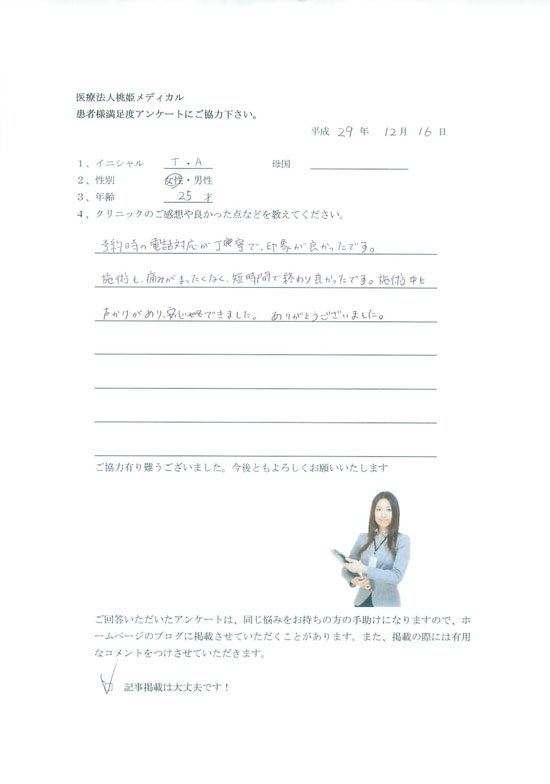 医療法人桃姫メディカル
患者様満足度アンケートにご協力下さい。
平成 29 年 12月 16 日
1、イニシャル T・A 母国
2、性別 女性・男性
3、年齢 25 才
4、クリニックのご感想や良かった点などを教えてください。
予約時の電話対応が丁寧で、印象が良かったです。
施術も、痛みがまったくなく、短時間で終わり良かったです。施術中も
声かけがあり、安心できました。 ありがとうございました。
ご協力有り難うございました。今後ともよろしくお願いいたします
ご回答いただいたアンケートは、同じ悩みをお持ちの方の手助けになりますので、ホ
ームページのブログに掲載させていただくことがあります。また、掲載の際には有用
なコメントをつけさせていただきます。
記事掲載は大丈夫です！